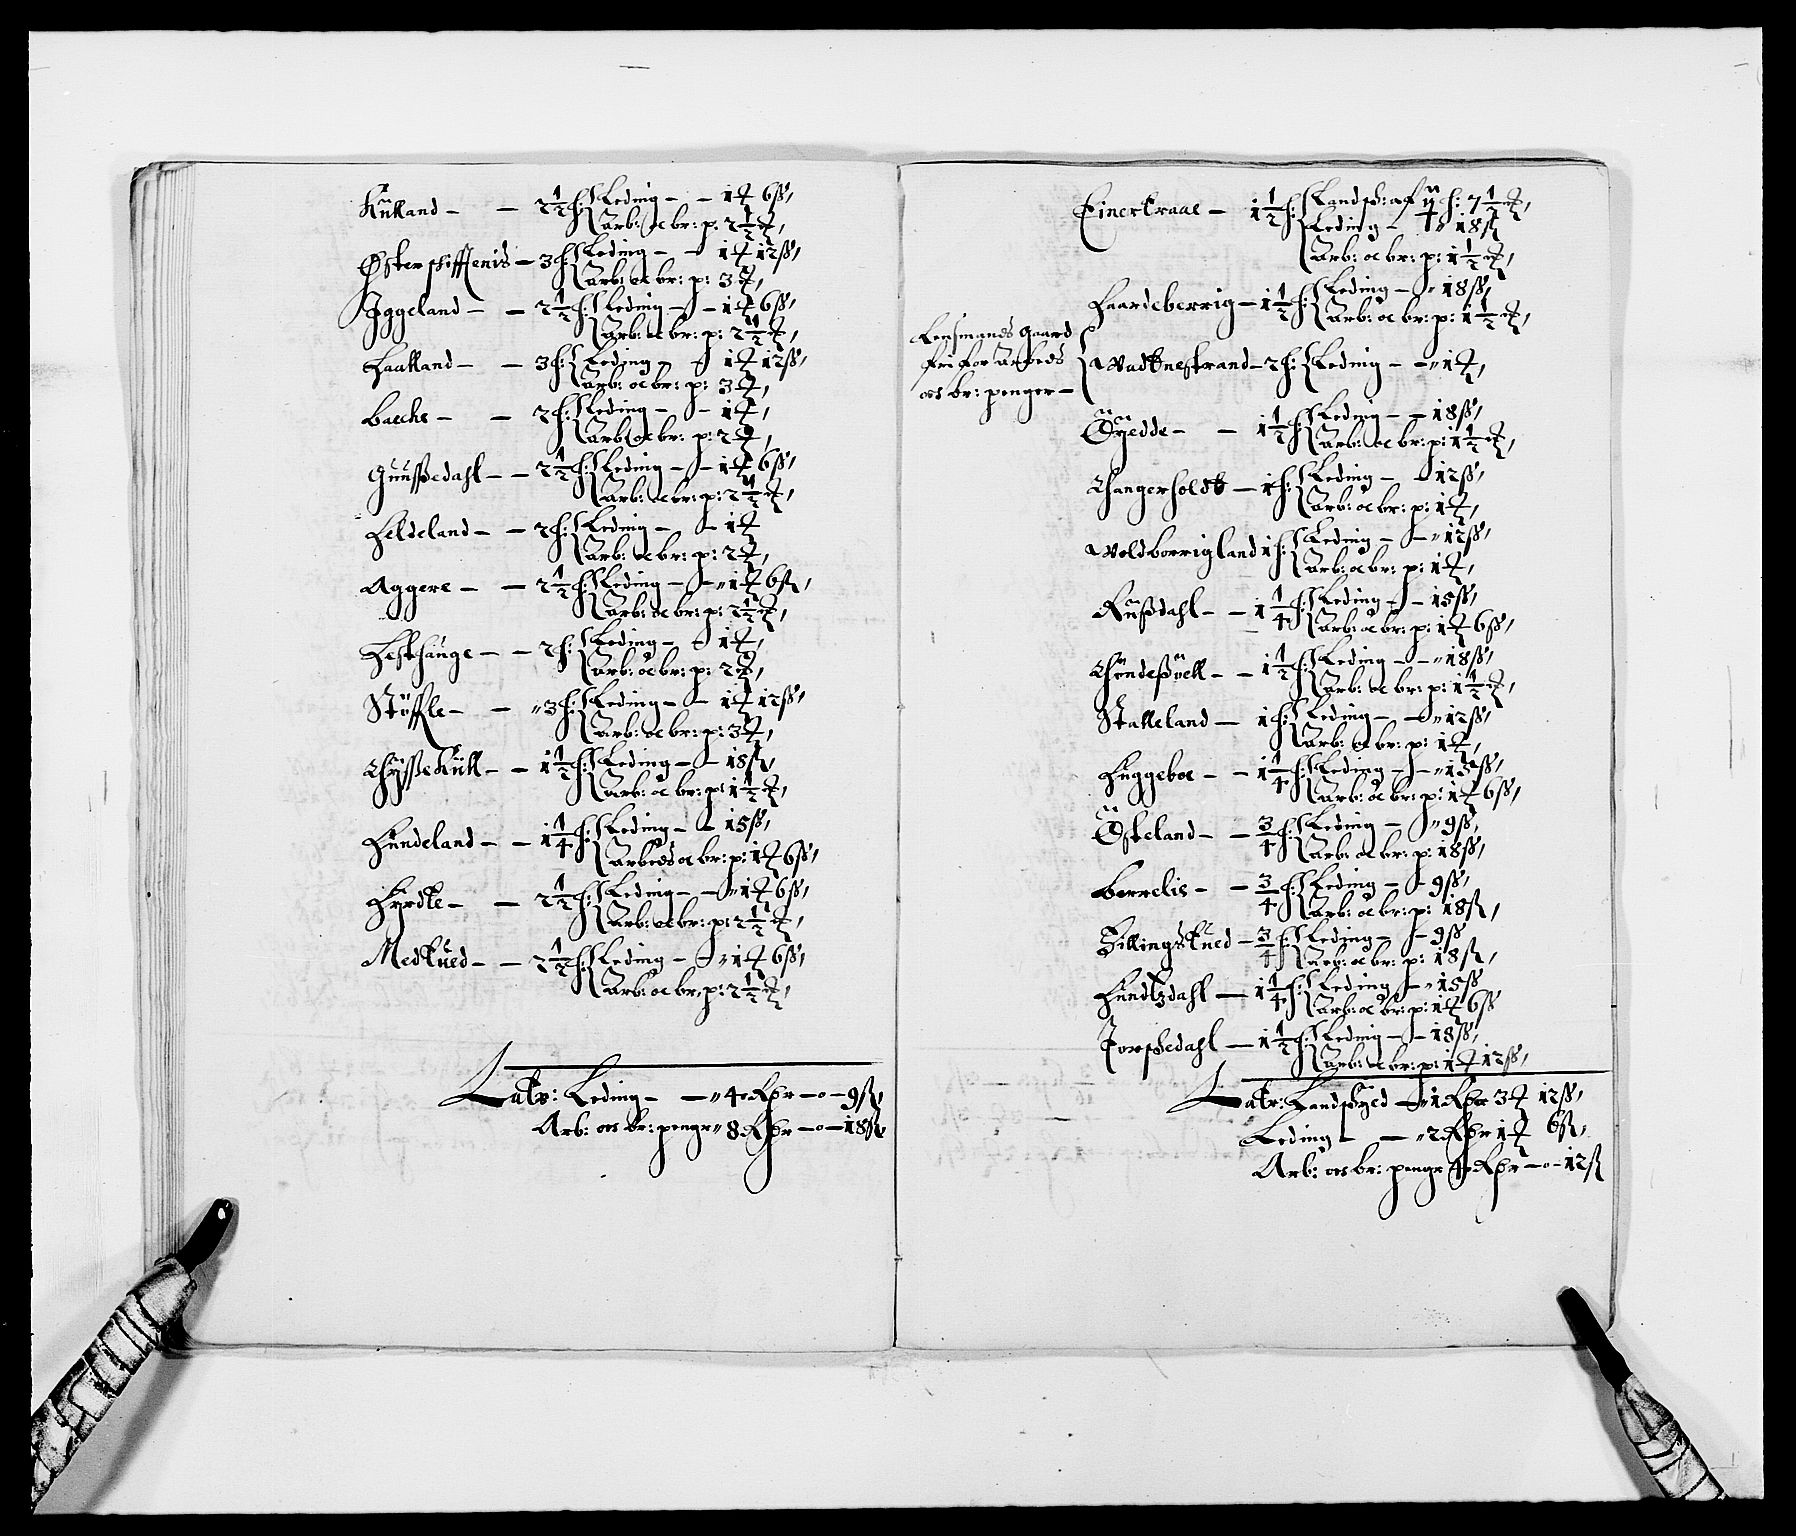 Kulland – – 2½ h: Leding – – 1 ort 6 ß,
Arb: oc br: p: 2½ ort,
Østerhiffenis – 3 h: Leding – – 1 ort 12 ß,
Arb: oc br: p: 3 ort,
Iggeland – – 2½ h: Leding – – 1 ort 6 ß,
Arb: oc br: p: 2½ ort,
Haalland – – 3 h: Leding – – 1 ort 12 ß,
Arb: oc br: p: 3 ort,
Baecke – – 2 h: Leding – – 1 ort,
Arb: oc br: p: 2 ort,
Guusßedahl – – 2½ h: Leding – – 1 ort 6 ß,
Arb: oc br: p: 2½ ort,
Heldeland – – 2 h: Leding – – 1 ort
Arb: oc br: p: 2 ort,
Aggere – – 2½ h: Leding – – 1 ort 6 ß
Arb: oc br: p: 2½ ort,
Hesthauge – – 2 h: Leding – – 1 ort,
Arb: oc br: p: 2 ort,
Støfle – – 3 h: Leding – – 1 ort 12 ß,
Arb: oc br: p: 3 ort,
– – 1½ h: Leding – – 18 ß,
Arb: oc br: p: 1½ ort,
Hundeland – – 1¼ h: Leding – – 15 ß,
Arbeds oc br: p: 1 ort 6 ß,
Hyrdle – – 2½ h: Leding – – 1 ort 6 ß,
Arb: oc br: p: 2½ ort,
Medhued – – 2½ h: Leding – – 1 ort 6 ß,
Arb: oc br: p: 2½ ort,
Latr: Leding – – 4 Rdr – o – 9 ß,
Arb: oc br: pengr 8 Rdr – o – 18 ß,
Einerkraae – 1½ h: Landsk: aff h: 7½ ort,
Leding – 18 ß
Arb: oc br: p: 1½ ort,
Haardeberrig – 1½ h: Leding – 18 ß,
Arb: oc br: p: 1½ ort,
Lensmands Gaard
fri for Arbeds
oc br: penger –
Wadtnestrand – 2 h: Leding – – 1 ort,
Øyedde – – 1½ h: Leding – – 18 ß,
Arb: oc br: p: 1½ ort,
Changerholdt – 1 h: Leding – – 12 ß,
Arb: oc br: p: 1 ort,
Woldborrigland 1 h: Leding – – 12 ß,
Arb: oc br: p: 1 ort,
Rußdahl – – 1¼ h: Leding – – 15 ß,
Arb: oc br: p: 1 ort 6 ß,
– – 1½ h: Leding – – 18 ß,
Arb: oc br: p: 1½ ort,
Stalleland – 1 h: Leding – – 12 ß,
Arb: oc br: p: 1 ort,
Huggeboe – – 1¼ h: Leding – – 15 ß,
Arb: oc br: p: 1 ort 6 ß,
Østeland – – ¾ h: Leding – 9 ß,
Arb: oc br: p: 18 ß,
Berrelis – – ¾ h: Leding – – 9 ß,
Arb: oc br: p: 18 ß,
Hillingshued – ¾ h: Leding – – 9 ß
Arb: oc br: p: 18 ß,
Hundtzdahl – 1¼ h: Leding – 15 ß
Arb: oc br: p: 1 ort 6 ß
Jorsßedahl – 1½ h: Leding – – 18 ß,
Arb: oc br: p: 1 ort 12 ß,
Latr: Landskyed – 1 Rdr 3 ort 12 ß,
Leding – – 2 Rdr 1 ort 6 ß,
Arb: oc br: pengr 4 Rdr – o – 12 ß